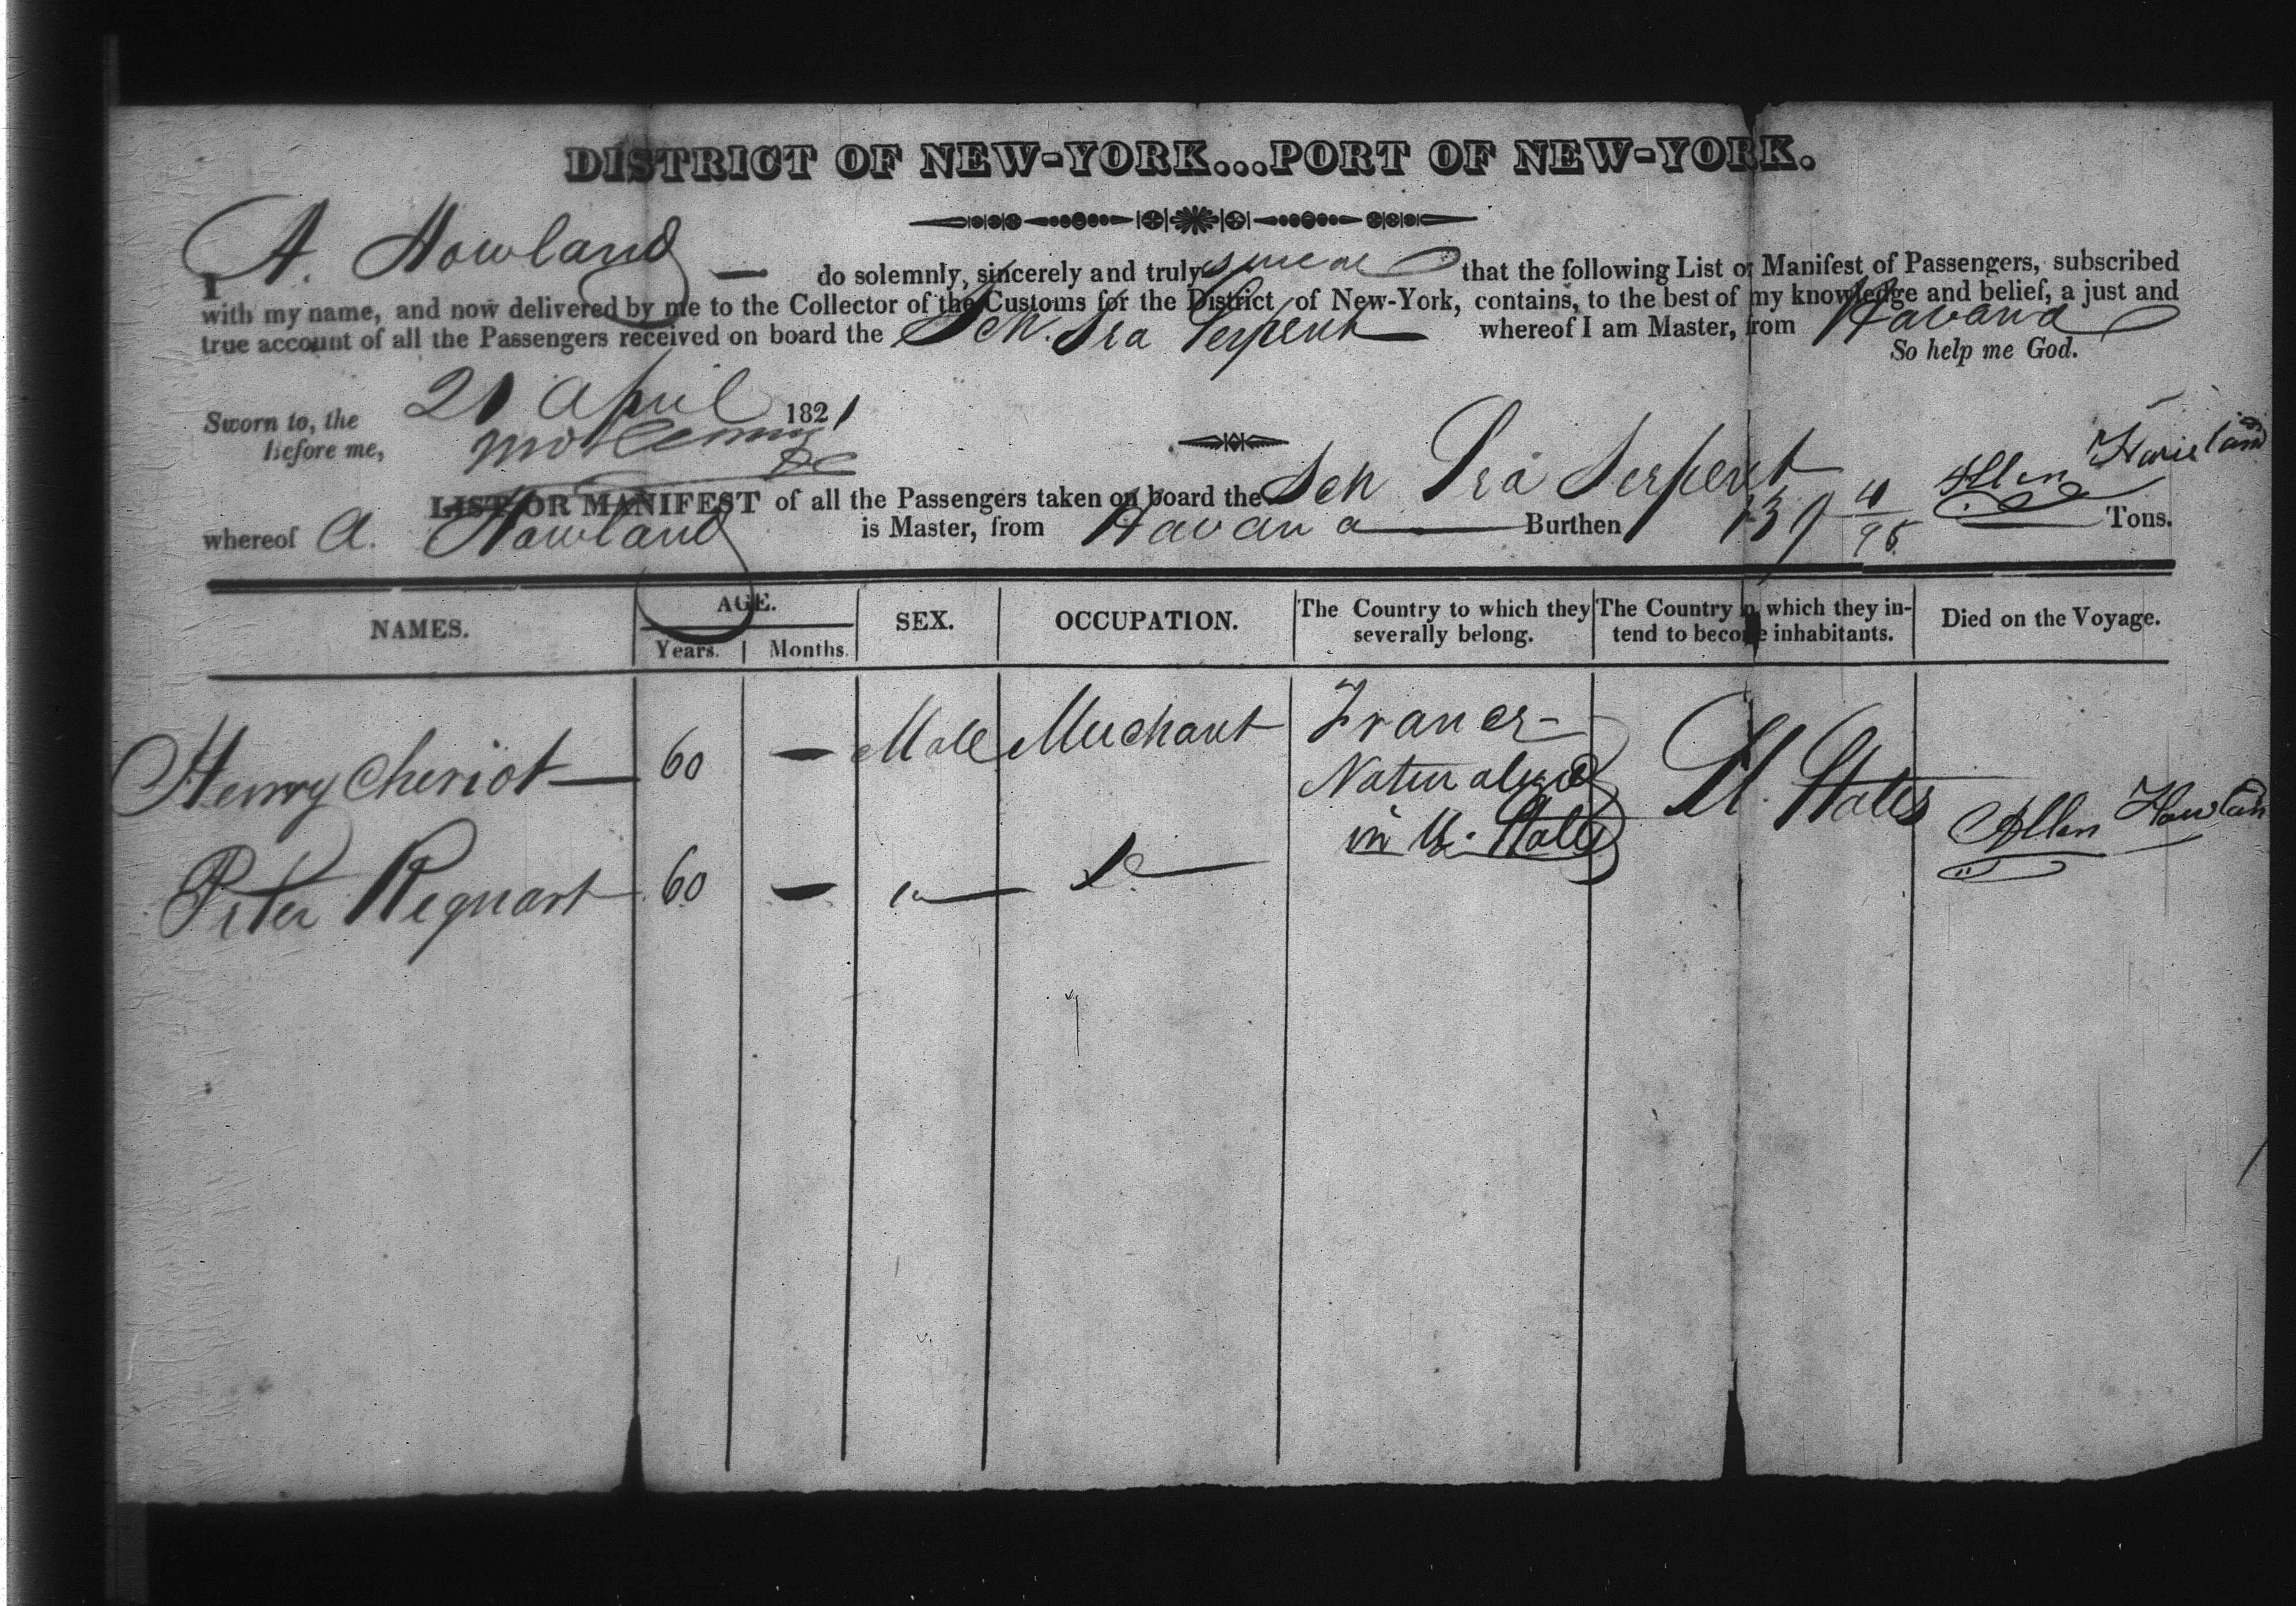 DISTRICT OF NEW-YORK...PORT OF NEW-YORK.
I A. Howland — do solemnly, sincerely and truly swear that the following List or Manifest of Passengers, subscribed
with my name, and now delivered by me to the Collector of the Customs for the District of New-York, contains, to the best of my knowledge and belief, a just and
true account of all the Passengers received on board the Sch. Sea Serpent whereof I am Master, from Havana
So help me God.
Sworn to, the 21 April 1821
before me,
Allen Howland
LIST OR MANIFEST of all the Passengers taken on board the Sch Sea Serpent
whereof A. Howland is Master, from Havana Burthen 139 4/95 Tons.
NAMES. AGE. SEX. OCCUPATION. The Country to which they severally belong. The Country in which they intend to become inhabitants. Died on the Voyage.
Years. Months.
Henry Cheriot — 60 — Male Merchant France U. States
Naturalized
in U. States
Allen Howland
Peter Regnart 60 —